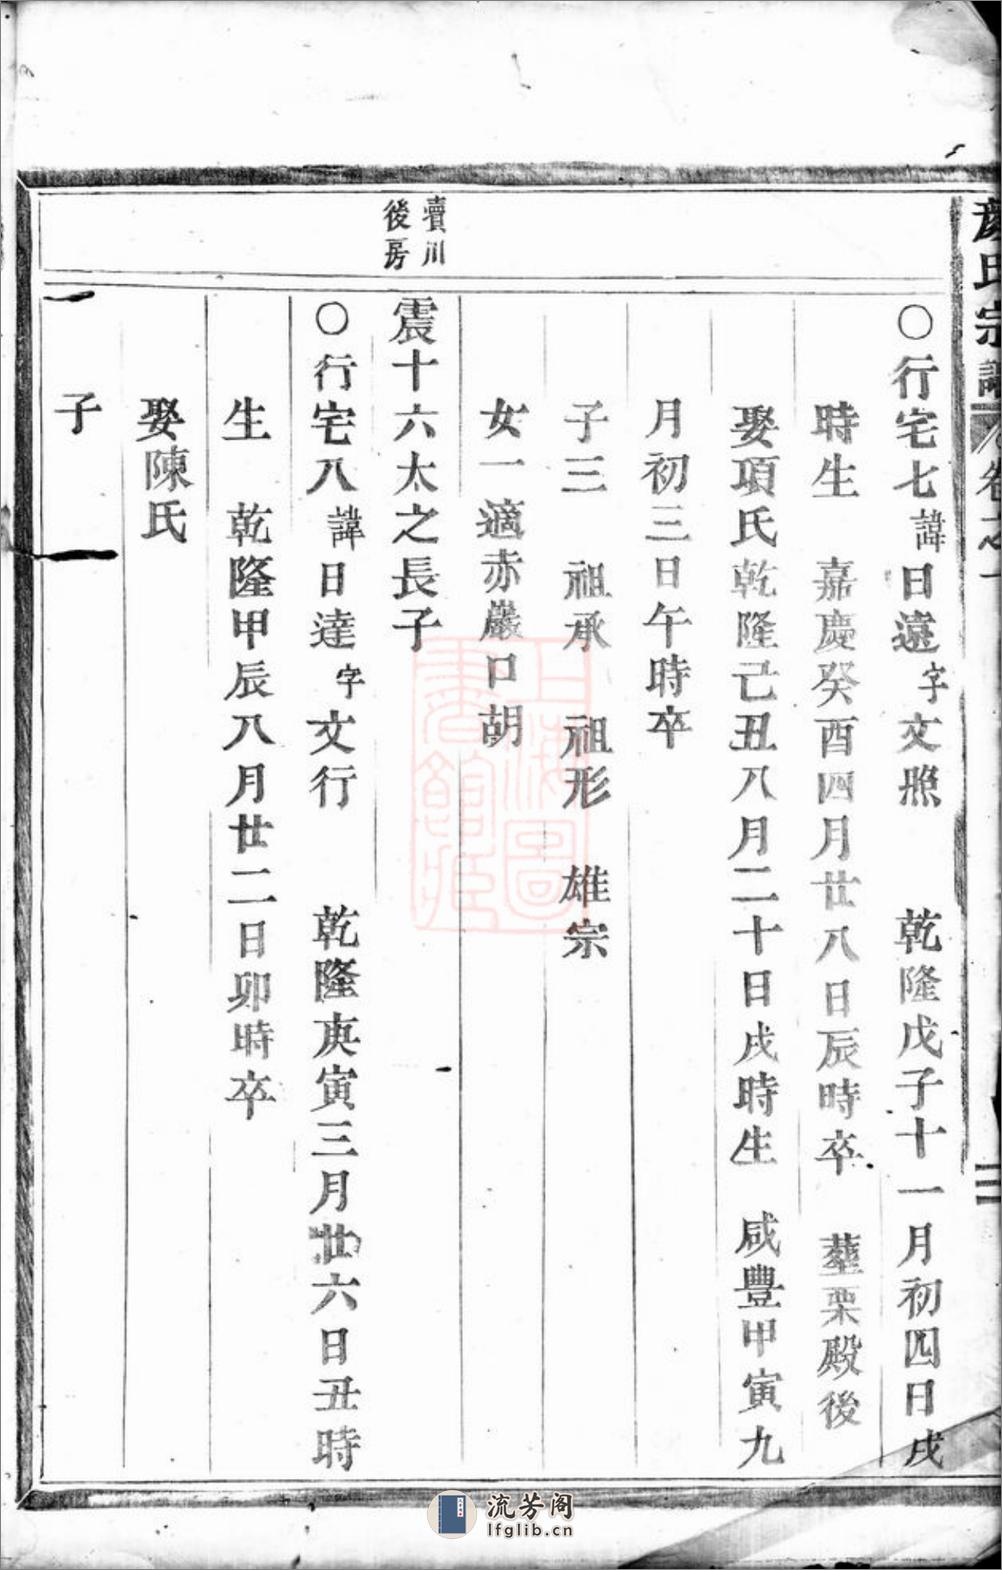 顏氏宗譜 卷之
三
〇行宅七諱日遠字文照 乾隆戊子十一月初四日戌
時生 嘉慶癸酉四月廿八日辰時卒 塟栗殿後
娶項氏乾隆己丑八月二十日戌時生 咸豐甲寅九
月初三日午時卒
子三 祖承 祖形 雄宗
女一適赤巖口胡
賣川
後房
震十六太之長子
〇行宅八諱日達字文行 乾隆庚寅三月廿六日丑時
生 乾隆甲辰八月廿二日卯時卒
娶陳氏
子
上海圖書館藏
流芳阁
lfglib.cn